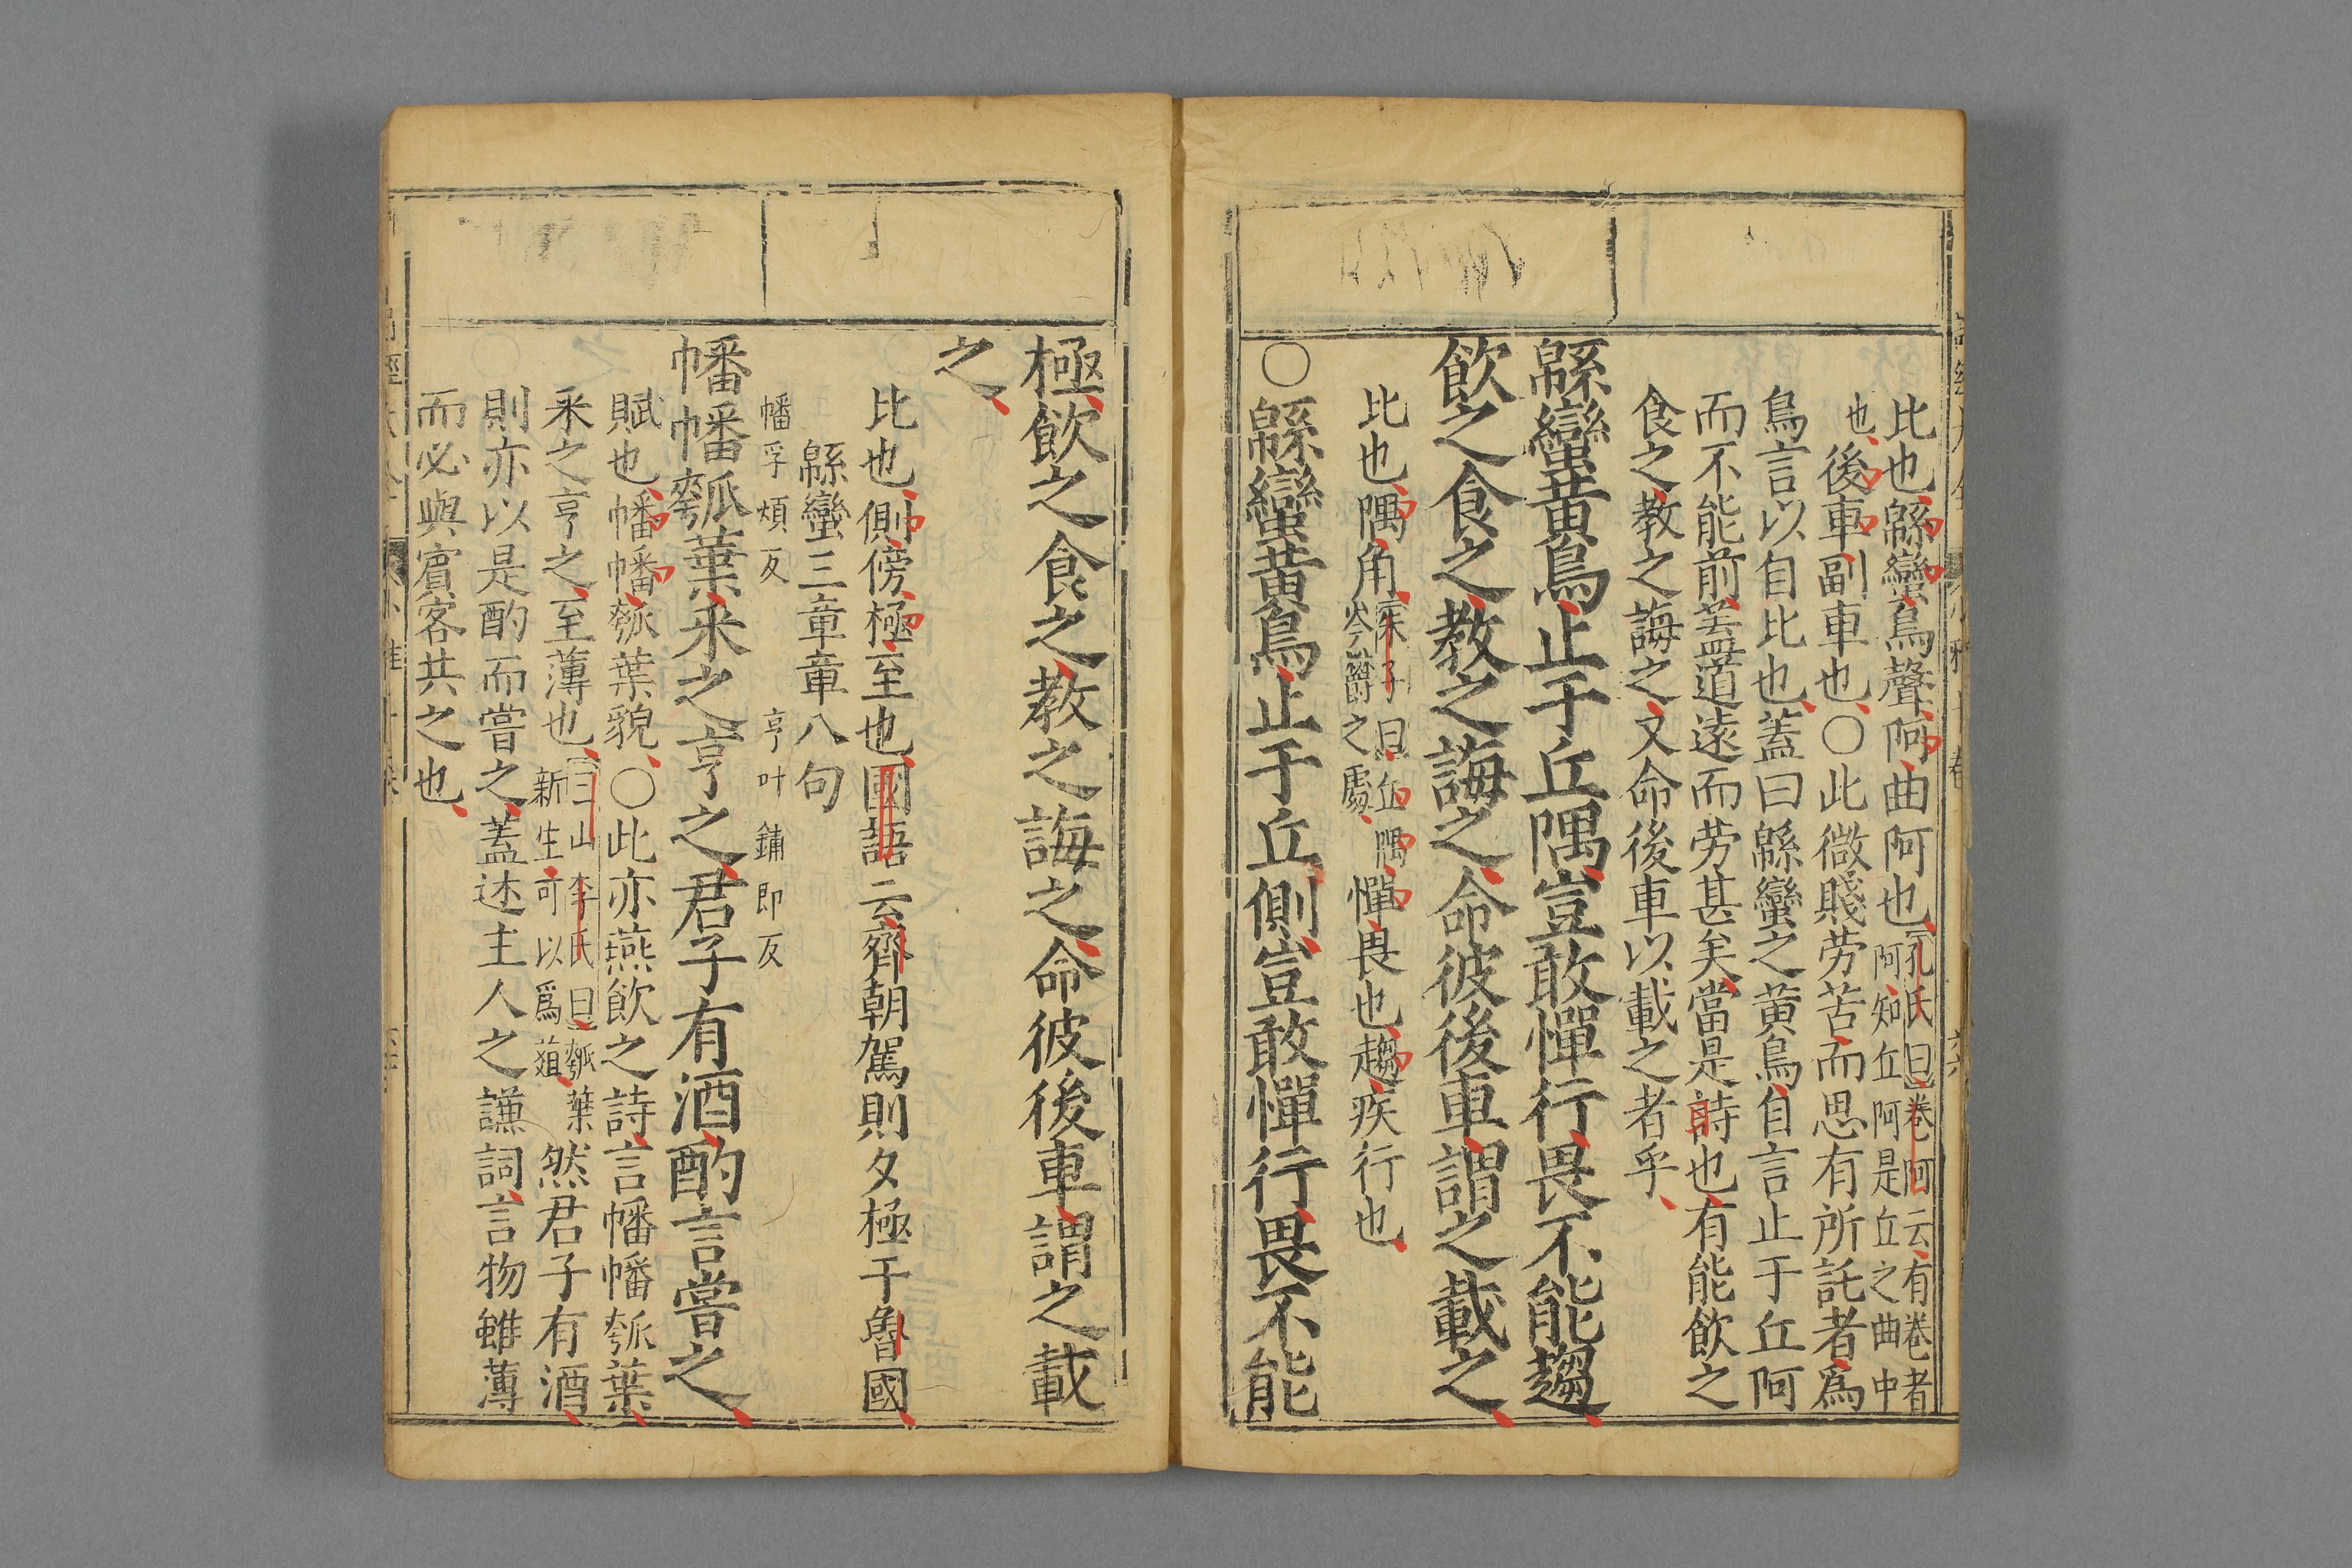 比也緜蠻鳥聲阿曲阿也孔氏曰卷阿云有卷者阿知丘阿是丘之曲中
也後車副車也○此微賤劳苦而思有所託者爲
鳥言以自比也蓋曰緜蠻之黄鳥自言止于丘阿
而不能前蓋道遠而劳甚矣當是詩也有能飲之
食之教之誨之又命後車以載之者乎
緜蠻黄鳥止于丘隅豈敢憚行畏不能趨
飲之食之教之誨之命彼後車謂之載之
比也隅角朱子曰丘隅岑蔚之處憚畏也趨疾行也
○緜蠻黄鳥止于丘側豈敢憚行畏不能
極飲之食之教之誨之命彼後車謂之載
之
比也側傍極至也國語云齊朝駕則夕極于魯國
緜蠻三章章八句
幡孚煩反 亨叶鋪郎反
幡幡瓠葉采之亨之君子有酒酌言嘗之
賦也幡幡瓠葉貌○此亦燕飲之詩言幡幡瓠葉
采之亨之至薄也三山李氏曰瓠葉新生可以爲葅然君子有酒
則亦以是酌而嘗之蓋述主人之謙詞言物雖薄
而必與賓客共之也